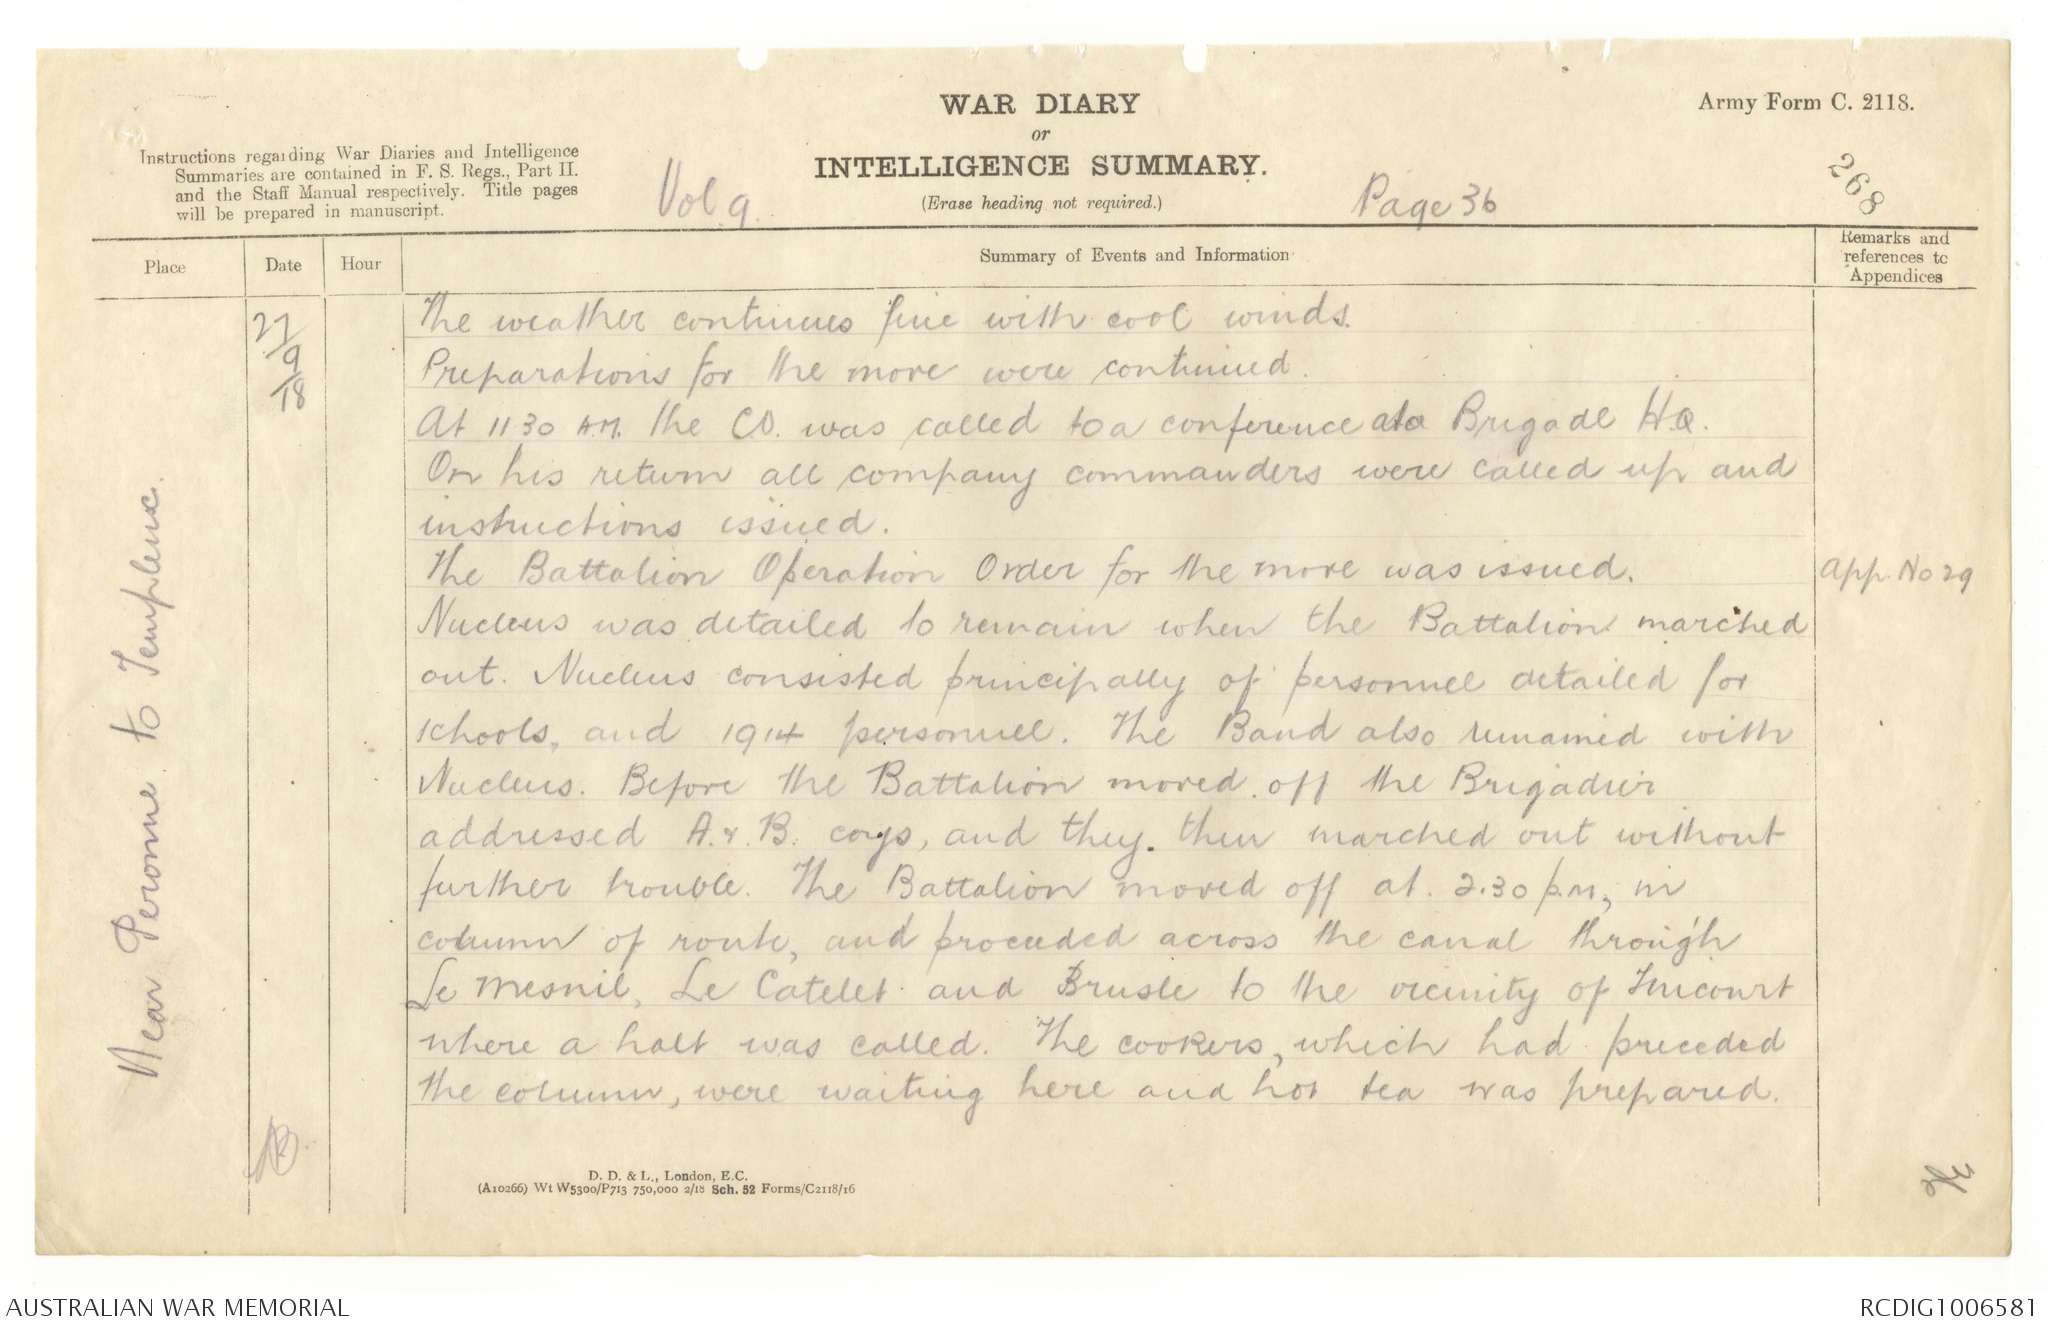 WAR DIARY
or
INTELLIGENCE SUMMARY.
(Erase heading not required.)
Army Form C. 2118.
Instructions regarding War Diaries and Intelligence
Summaries are contained in F. S. Regs., Part II.
and the Staff Manual respectively. Title pages
will be prepared in manuscript.
Vol 9.
Page 36
268
Place
Date
Hour
Summary of Events and Information
Remarks and
references to
Appendices
Near Peronne to Templeux.
27
9
18
The weather continues fine with cool winds.
Preparations for the move were continued.
At 11 30 A.M. the CO. was called to a conference at Brigade H.Q.
On his return all company commanders were called up and
instructions issued.
The Battalion Operation Order for the move was issued.
App. No 29
Nucleus was detailed to remain when the Battalion marched
out. Nucleus consisted principally of personnel detailed for
schools, and 1914 personnel. The Band also remained with
Nucleus. Before the Battalion moved off the Brigadier
addressed A. & B. coys, and they. then marched out without
further trouble. The Battalion moved off at 2.30 p.m, in
column of route, and proceeded across the canal through
Le Mesnil, Le Catelet and Brusle to the vicinity of Tincourt
where a halt was called. The cookers, which had preceded
the column, were waiting here and hot tea was prepared.
D. D. & L., London, E.C.
(A10266) Wt W5300/P713 750,000 2/18 Sch. 52 Forms/C2118/16
AUSTRALIAN WAR MEMORIAL
RCDIG1006581